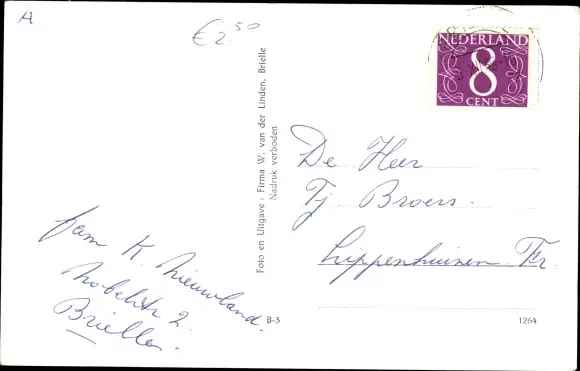 A
€ 2.50
NEDERLAND
8
CENT
Foto en Uitgave: Firma W. van der Linden, Brielle
Nadruk verboden
De Heer
Tj Broers.
Lippenhuizen Fr.
fam K. Nieuwland.
Nobelstr 2.
Brielle.
B-3
1264